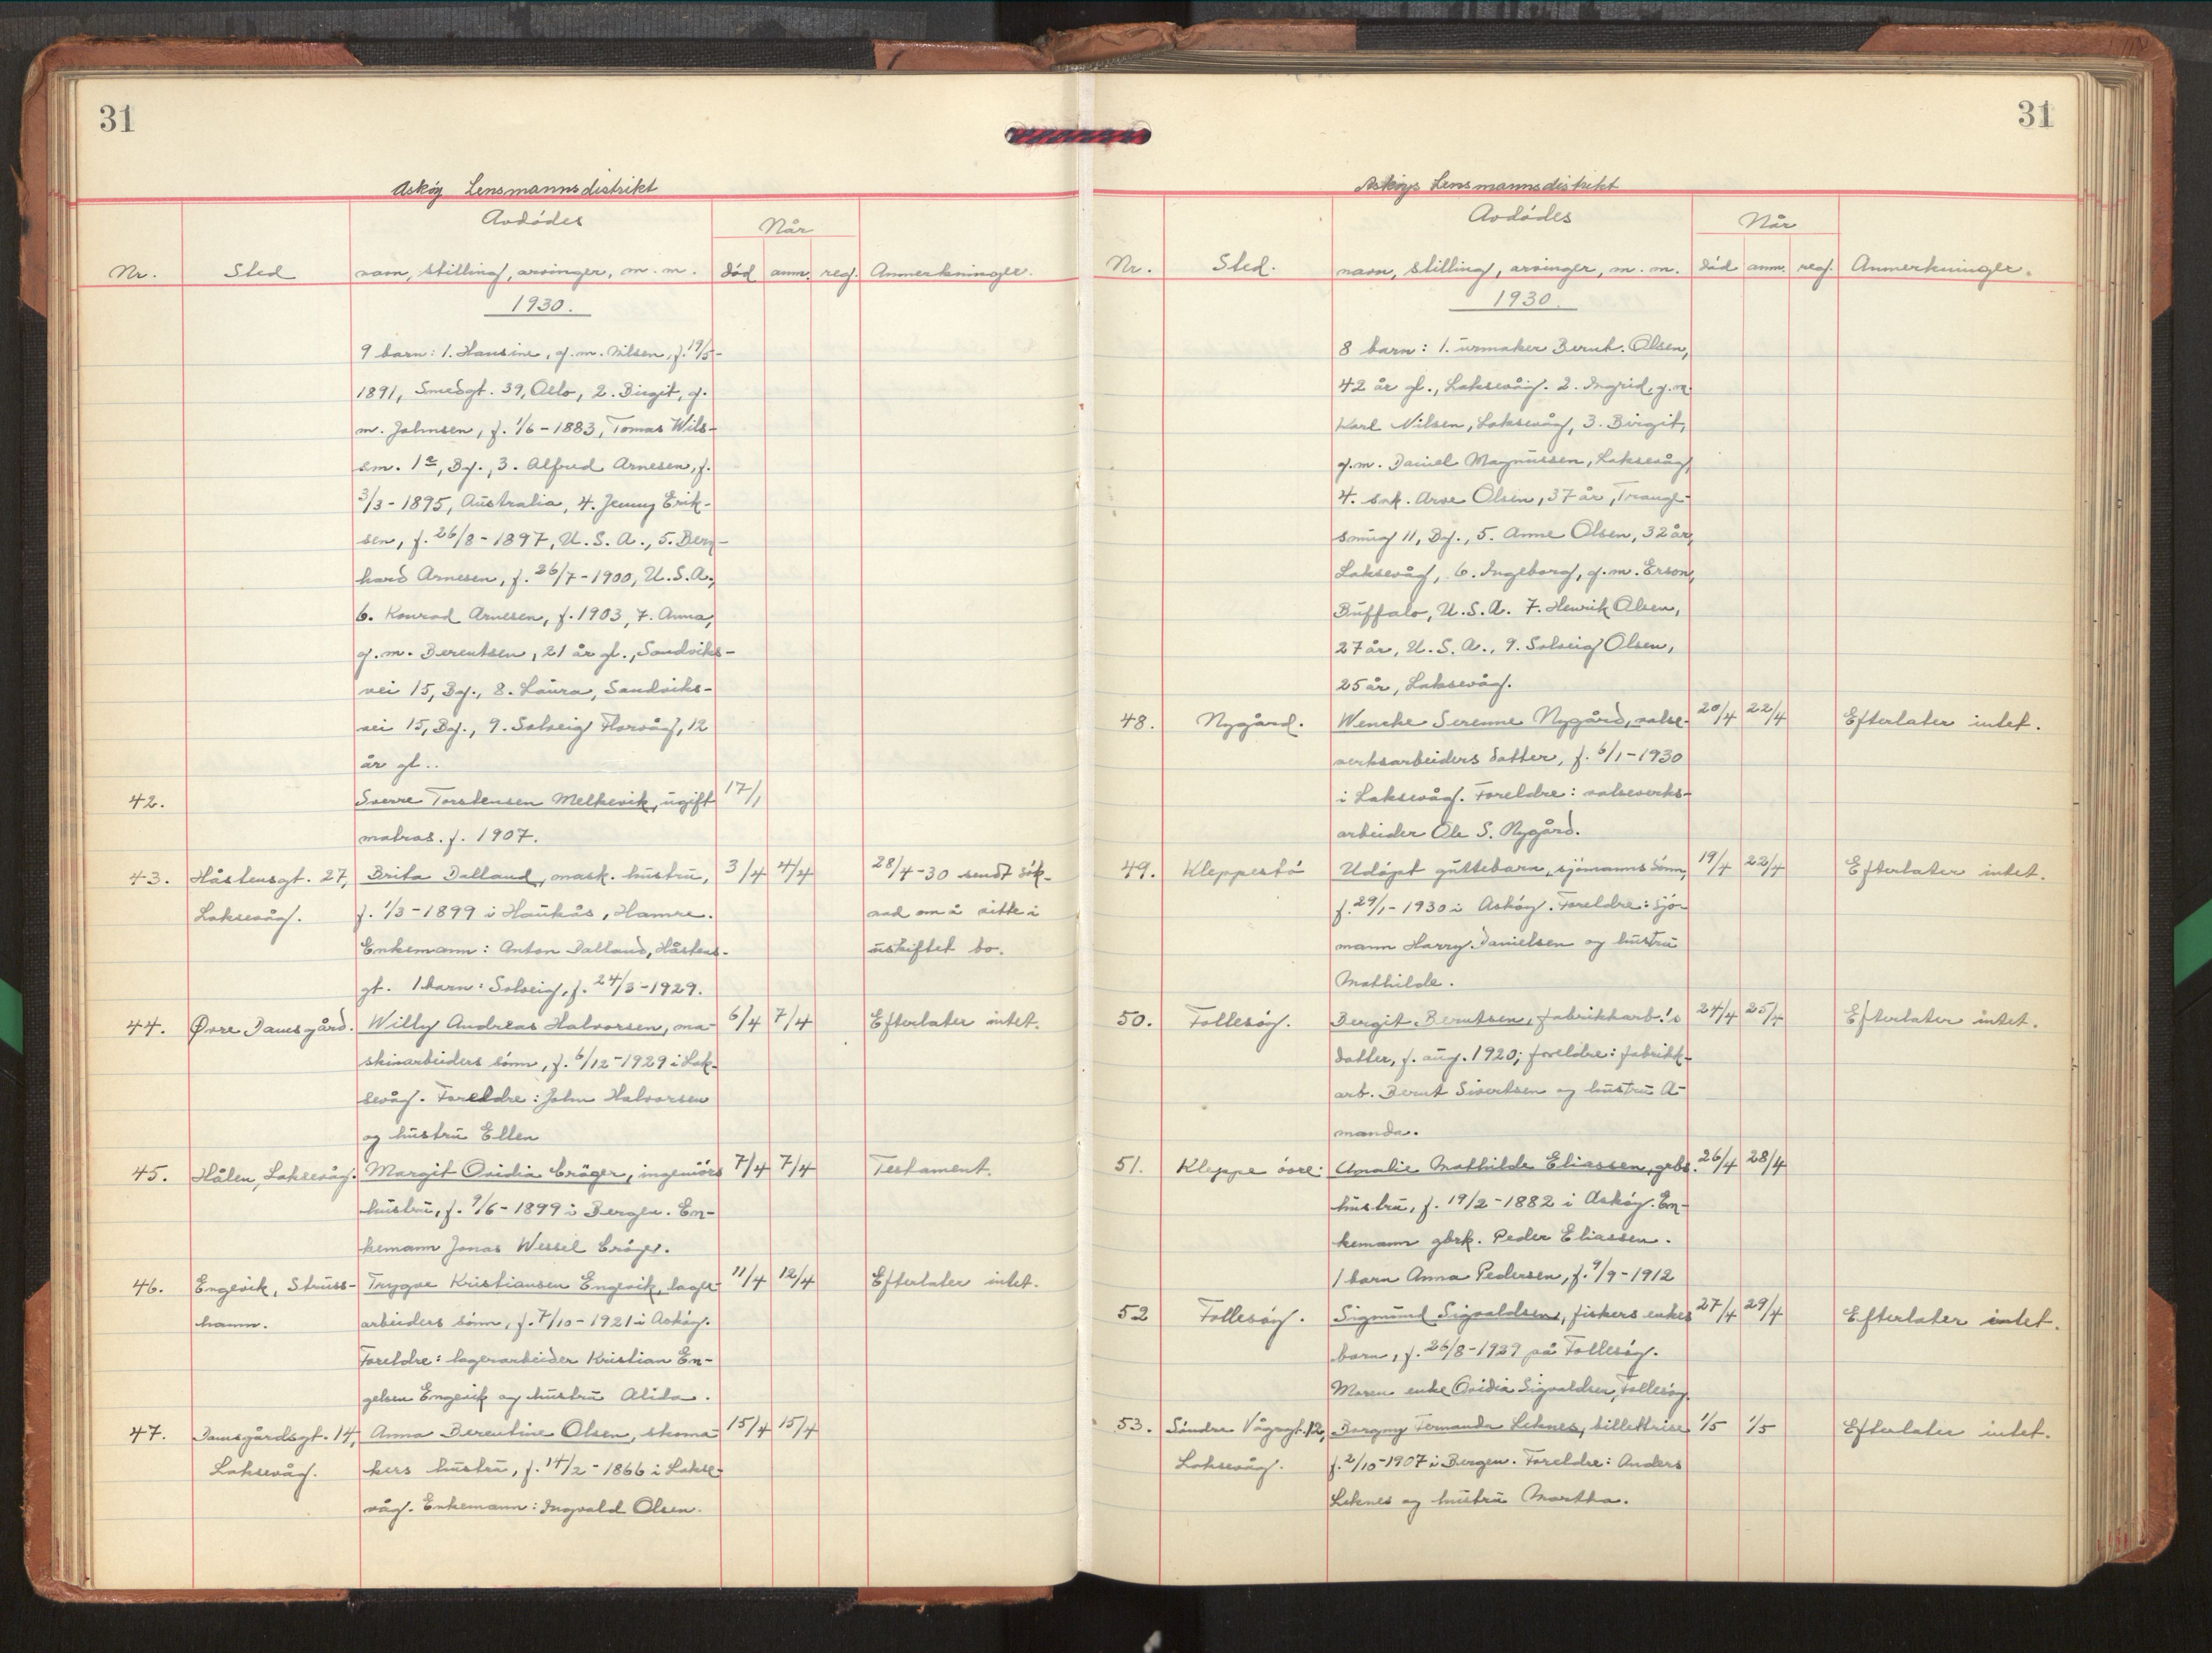 31
Askøy Lensmannsdistrikt
Avdødes
Når
Nr. Sted navn, stilling, arvinger, m. m. død anm. reg. Anmerkninger.
1930.
9 barn: 1. Hansine, g. m. Nilsen, f. 19/5-
1891, Smedgt. 39, Oslo, 2. Birgit, g.
m. Johnsen, f. 1/6 - 1883, Tomas Wils-
sm. 1a, Bg., 3. Alfred Arnesen, f.
3/3 - 1895, Australia, 4. Jenny Erik-
sen, f. 26/8 - 1897, U. S. A., 5. Bern-
hard Arnesen, f. 26/7 - 1900, U. S. A.,
6. Konrad Arnesen, f. 1903, 7. Anna,
g. m. Berentsen, 21 år gl., Sandviks-
vei 15, Bg., 8. Laura, Sandviks-
vei 15, Bg., 9. Solveig Florvåg, 12
år gl..
42. Sverre Torstensen Melkevik, ugift 17/1
matros. f. 1907.
43. Håstensgt. 27, Brita Dalland, mask. hustru, 3/4 4/4 28/4-30 sendt sök-
Laksevåg. f. 1/3 - 1899 i Haukås, Hamre. nad om å sitte i
Enkemann: Anton Dalland, Håstens- uskiftet bo.
gt. 1 barn: Solveig, f. 24/3 - 1929.
44. Øvre Damsgård. Willy Andreas Halvorsen, ma- 6/4 7/4 Efterlater intet.
skinarbeiders sönn, f. 6/12 - 1929 i Lak-
sevåg. Foreldre: John Halvorsen
og hustru Ellen
45. Hålen, Laksevåg. Margit Ovidia Cröger, ingeniörs 7/4 7/4 Testament.
hustru, f. 9/6 - 1899 i Bergen. En-
kemann Jonas Wessel Cröger.
46. Engevik, Struss- Trygve Kristiansen Engevik, lager- 11/4 12/4 Efterlater intet.
hamn. arbeiders sönn, f. 7/10 - 1921 i Askøy.
Foreldre: lagerarbeider Kristian En-
gelsen Engevik og hustru Alida.
47. Damsgårdsgt. 14, Anna Berentine Olsen, skoma- 15/4 15/4
Laksevåg. kers hustru, f. 14/2 - 1866 i Lakse-
våg. Enkemann: Ingvald Olsen.
31
Askøys Lensmannsdistrikt
Avdødes
Når
Nr. Sted. navn, stilling, arvinger, m. m. død anm. reg. Anmerkninger.
1930.
8 barn: 1. urmaker Bernt. Olsen,
42 år gl., Laksevåg. 2. Ingrid, g. m.
Karl Nilsen, Laksevåg, 3. Birgit,
g. m. Daniel Magnussen, Laksevåg,
4. Arve Olsen, 37 år, Trange-
smug 11, Bg., 5. Anne Olsen, 32 år,
Laksevåg, 6. Ingeborg, g. m. Erson,
Buffalo, U. S. A. 7. Henrik Olsen,
27 år, U. S. A., 9. Solveig Olsen,
25 år, Laksevåg.
48. Nygård. Wenche Serenne Nygård, valse- 20/4 22/4 Efterlater intet.
verksarbeiders datter, f. 6/1 - 1930
i Laksevåg. Foreldre: valseverks-
arbeider Ole S. Nygård.
49. Kleppestö Udöpt guttebarn, sjömanns sönn, 19/4 22/4 Efterlater intet.
f. 29/1 - 1930 i Askøy. Foreldre: sjö-
mann Harry Danielsen og hustru
Mathilde.
50. Follesöy. Bergit Berntsen, fabrikkarb.'s 24/4 25/4 Efterlater intet.
datter, f. aug. 1920; foreldre: fabrikk-
arb. Bernt Sivertsen og hustru A-
manda.
51. Kleppe övre: Amalie Mathilde Eliassen, gbs. 26/4 28/4
hustru, f. 19/2 - 1882 i Askøy. En-
kemann gbrk. Peder Eliassen.
1 barn Anna Pedersen, f. 9/9 - 1912
52 Follesöy. Sigmund Sigvaldsen, fiskers enkes 27/4 29/4 Efterlater intet.
barn, f. 26/8 - 1929 på Follesöy.
Moren enke Ovidia Sigvaldsen, Follesöy.
53. Söndre Vågsgt. 12, Borgny Fernanda Leknes, billettrise 1/5 1/5 Efterlater intet.
Laksevåg. f. 2/10 - 1907 i Bergen. Foreldre: Anders
Leknes og hustru Martha.